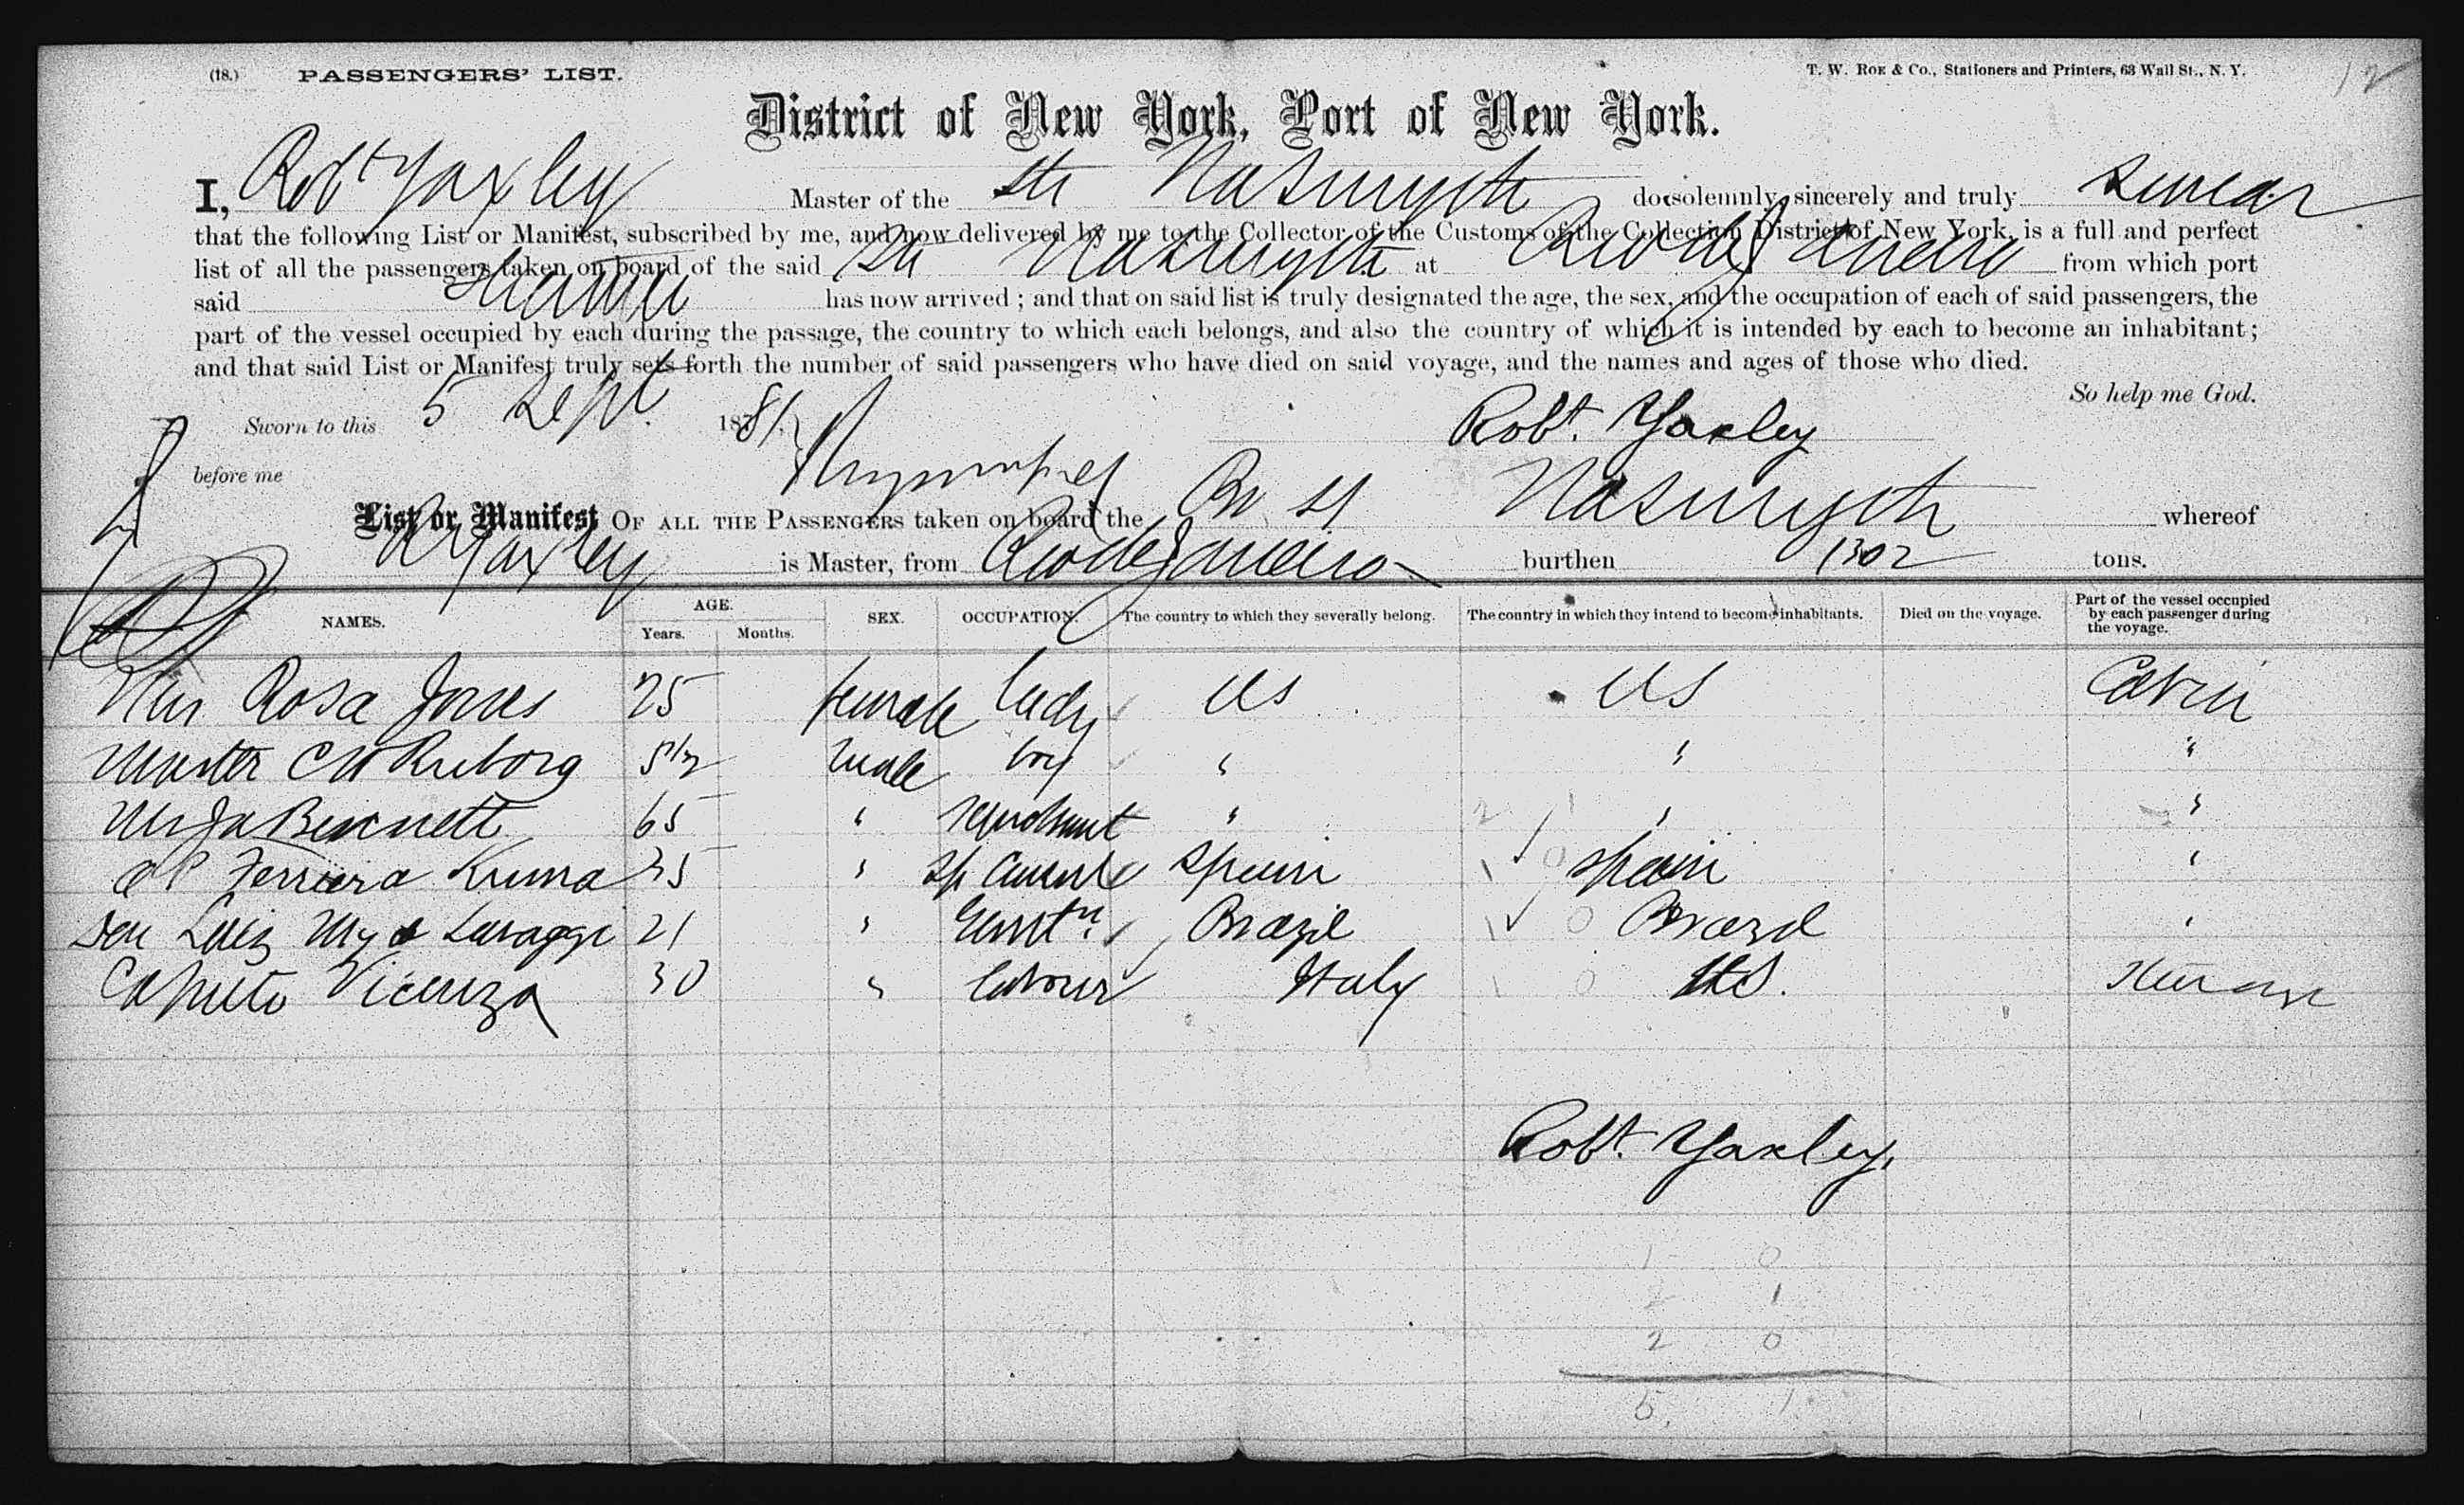 (18.) PASSENGERS' LIST. T. W. ROE & CO., Stationers and Printers, 63 Wall St., N. Y. 12
District of New York, Port of New York.
I, Robt Yaxley Master of the Str Nasmyth do solemnly, sincerely and truly swear
that the following List or Manifest, subscribed by me, and now delivered by me to the Collector of the Customs of the Collection District of New York, is a full and perfect
list of all the passengers taken on board of the said Str Nasmyth at Rio de Janeiro from which port
said Steamer has now arrived ; and that on said list is truly designated the age, the sex, and the occupation of each of said passengers, the
part of the vessel occupied by each during the passage, the country to which each belongs, and also the country of which it is intended by each to become an inhabitant ;
and that said List or Manifest truly sets forth the number of said passengers who have died on said voyage, and the names and ages of those who died.
So help me God.
Sworn to this 5 Sept. 1881. Robt. Yaxley
before me
List or Manifest OF ALL THE PASSENGERS taken on board the Br St Nasmyth whereof
R Yaxley is Master, from Rio de Janeiro burthen 1302 tons.
NAMES. AGE. Years. Months. SEX. OCCUPATION. The country to which they severally belong. The country in which they intend to become inhabitants. Died on the voyage. Part of the vessel occupied by each passenger during the voyage.
Rosa Jones 25 female lady US US Cabin
Master C W Ruborg 5 1/2 male boy " " "
Mr Ja Bennett 65 " merchant " " "
Ferriera Kuma 25 " Spain Spain "
Luiz 21 " Gentn. Brazil Brazil "
Caputo Vicenza 30 " labourer Italy U.S. Steerage
Robt. Yaxley.
1 0
2 1
2 0
5. 1.